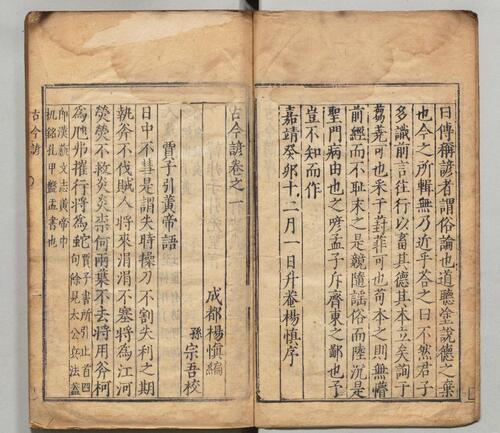 曰傳稱諺者謂俗論也道聽塗說德之棄
也今之所輯無乃近乎荅之曰不然君子
多識前言往行以畜其德其本立矣詢于
蒭蕘可也采于葑菲可也苟本之則無懵
前經而不耻末之是競隨謡俗而陸沉是
聖門病由也之喭孟子斥齊東之鄙也予
豈不知而作
嘉靖癸卯十二月一日升菴楊慎序
古今諺卷之一
成都楊慎編
孫宗吾校
賈子引黃帝語
日中不彗是謂失時操刀不割失利之期
執斧不伐賊人將來涓涓不塞將為江河
熒熒不救炎炎柰何兩葉不去將用斧柯
為虺弗摧行將為蛇賈子書所引止首四
句餘見太公兵法蓋
即漢藝文志黃帝巾
机銘孔甲盤盂書也
古今諺
一